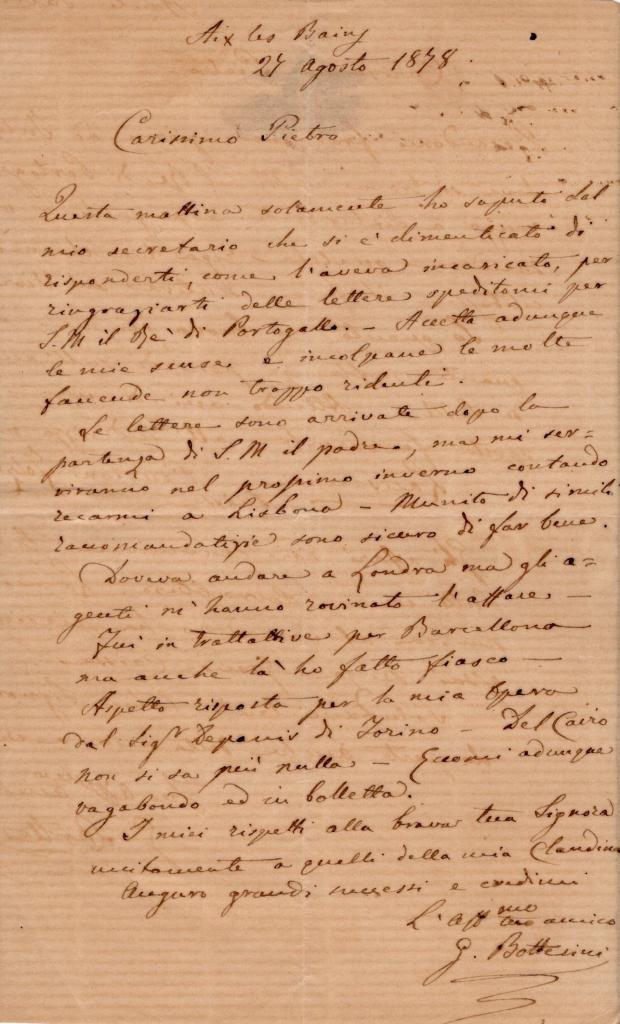 Aix les Bains
27 Agosto 1878.
Carissimo Pietro
Questa mattina solamente ho saputo dal
mio secretario che si è dimenticato di
risponderti, come l'avevo incaricato, per
ringraziarti delle lettere speditemi per
S.M il Rè di Portogallo. – Accetta adunque
le mie scuse e incolpane le molte
faccende non troppo ridenti.
Le lettere sono arrivate dopo la
partenza di S.M il padre, ma mi ser=
viranno nel prossimo inverno contando
recarmi a Lisbona – Munito di simili
raccomandatizie sono sicuro di far bene.
Doveva andare a Londra ma gli a=
genti m'hanno rovinato l'affare –
Fui in trattative per Barcellona
ma anche là ho fatto fiasco –
Aspetto risposta per la mia Opera
dal Sigr Depanis di Torino – Del Cairo
non si sa più nulla – Eccomi adunque
vagabondo ed in bolletta.
I miei rispetti alla brava tua Signora
unitamente a quelli della mia Claudina
Auguro grandi successi e credimi
L'affmo amico
G. Bottesini